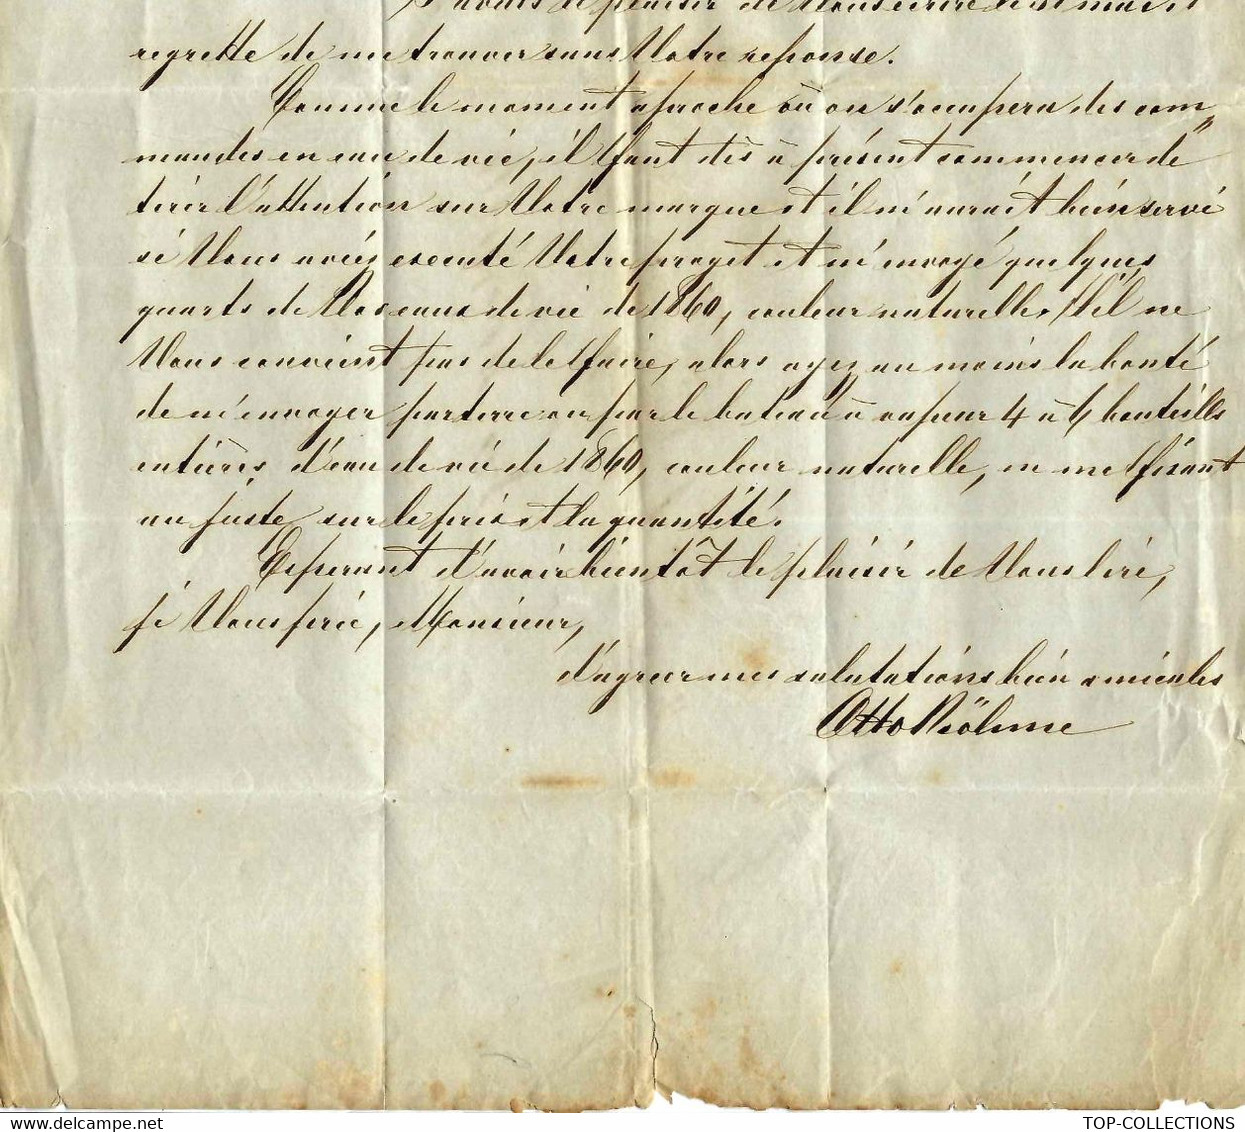 J'avais le plaisir de Vous écrire le 31 mai et
regrette de me trouver sans Votre reponse.
Comme le moment aproche où on s'occupera des com-
mandes en eau de vie, il faut dès à présent commencer de
tirer l'attention sur Votre marque et il m'aurait bien servi
si Vous aviez executé Votre proget et m'envoyé quelques
quarts de Vos eaux de vie de 1860, couleur naturelle. S'il ne
Vous convient pas de le faire, alors ayez au moins la bonté
de m'envoyer par terre ou par le bateau à vapeur 4 à 6 bouteills
entières d'eau de vie de 1860, couleur naturelle, en me fixant
au juste sur le prix et la quantité.
Esperant d'avoir bientôt le plaisir de Vous lire,
je Vous prie, Monsieur,
d'agreer mes salutations bien amicales
Otto Böhme
TOP-COLLECTIONS